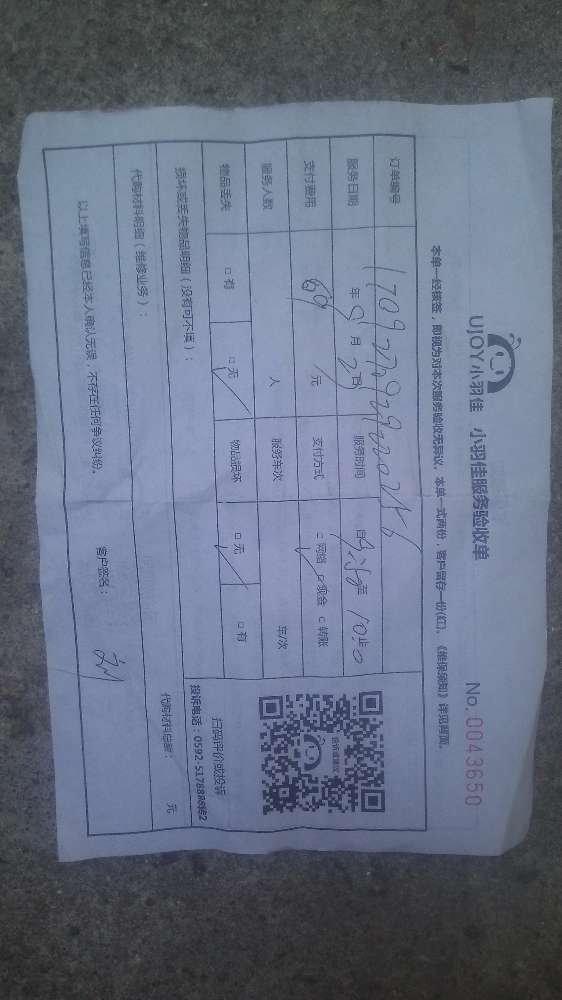 UJOY小羽佳 小羽佳服务验收单
No.0043650
本单一经核签，即视为对本次服务验收无异议。本单一式两份，客户留存一份(红)。《维保须知》详见背面。
订单编号
服务日期 年 9 月 2 日 服务时间 10点
支付费用 69 元 支付方式 □网络 □现金 □转账
服务人数 人 服务车次 车/次
物品丢失 □有 □无 物品损坏 □无 □有
扫码评价或投诉
投诉电话：0592-5178888转2
损坏或丢失物品明细（没有可不填）：
代购材料明细（维修业务）： 代购材料总额： 元
以上填写信息已经本人确认无误，不存在任何争议纠纷。 客户签名：